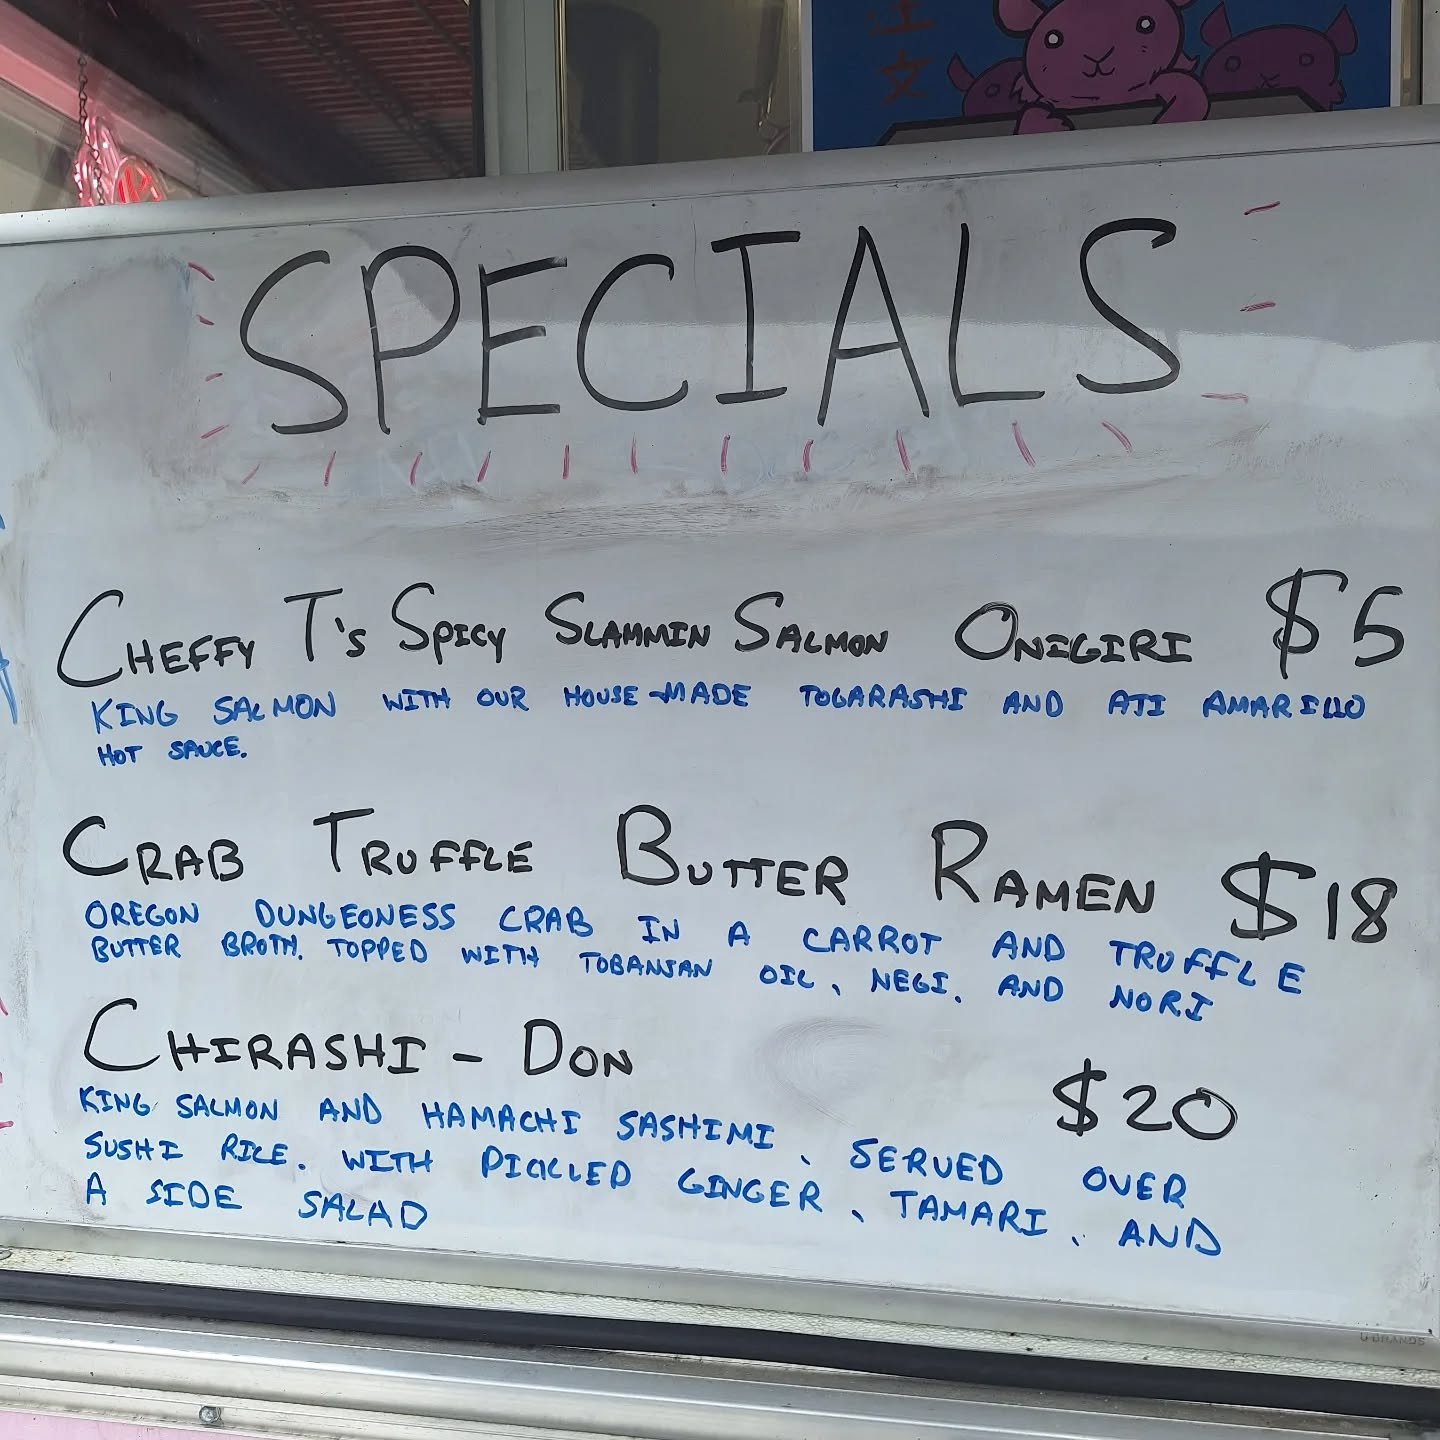 王
文
SPECIALS
CHEFFY T'S SPICY SLAMMIN SALMON ONIGIRI $5
KING SALMON WITH OUR HOUSE-MADE TOGARASHI AND AJI AMARILLO
HOT SAUCE.
CRAB TRUFFLE BUTTER RAMEN $18
OREGON DUNGEONESS CRAB IN A CARROT AND TRUFFLE
BUTTER BROTH. TOPPED WITH TOBANJAN OIL, NEGI, AND NORI
CHIRASHI - DON $20
KING SALMON AND HAMACHI SASHIMI, SERVED OVER
SUSHI RICE. WITH PICKLED GINGER, TAMARI, AND
A SIDE SALAD
U BRANDS